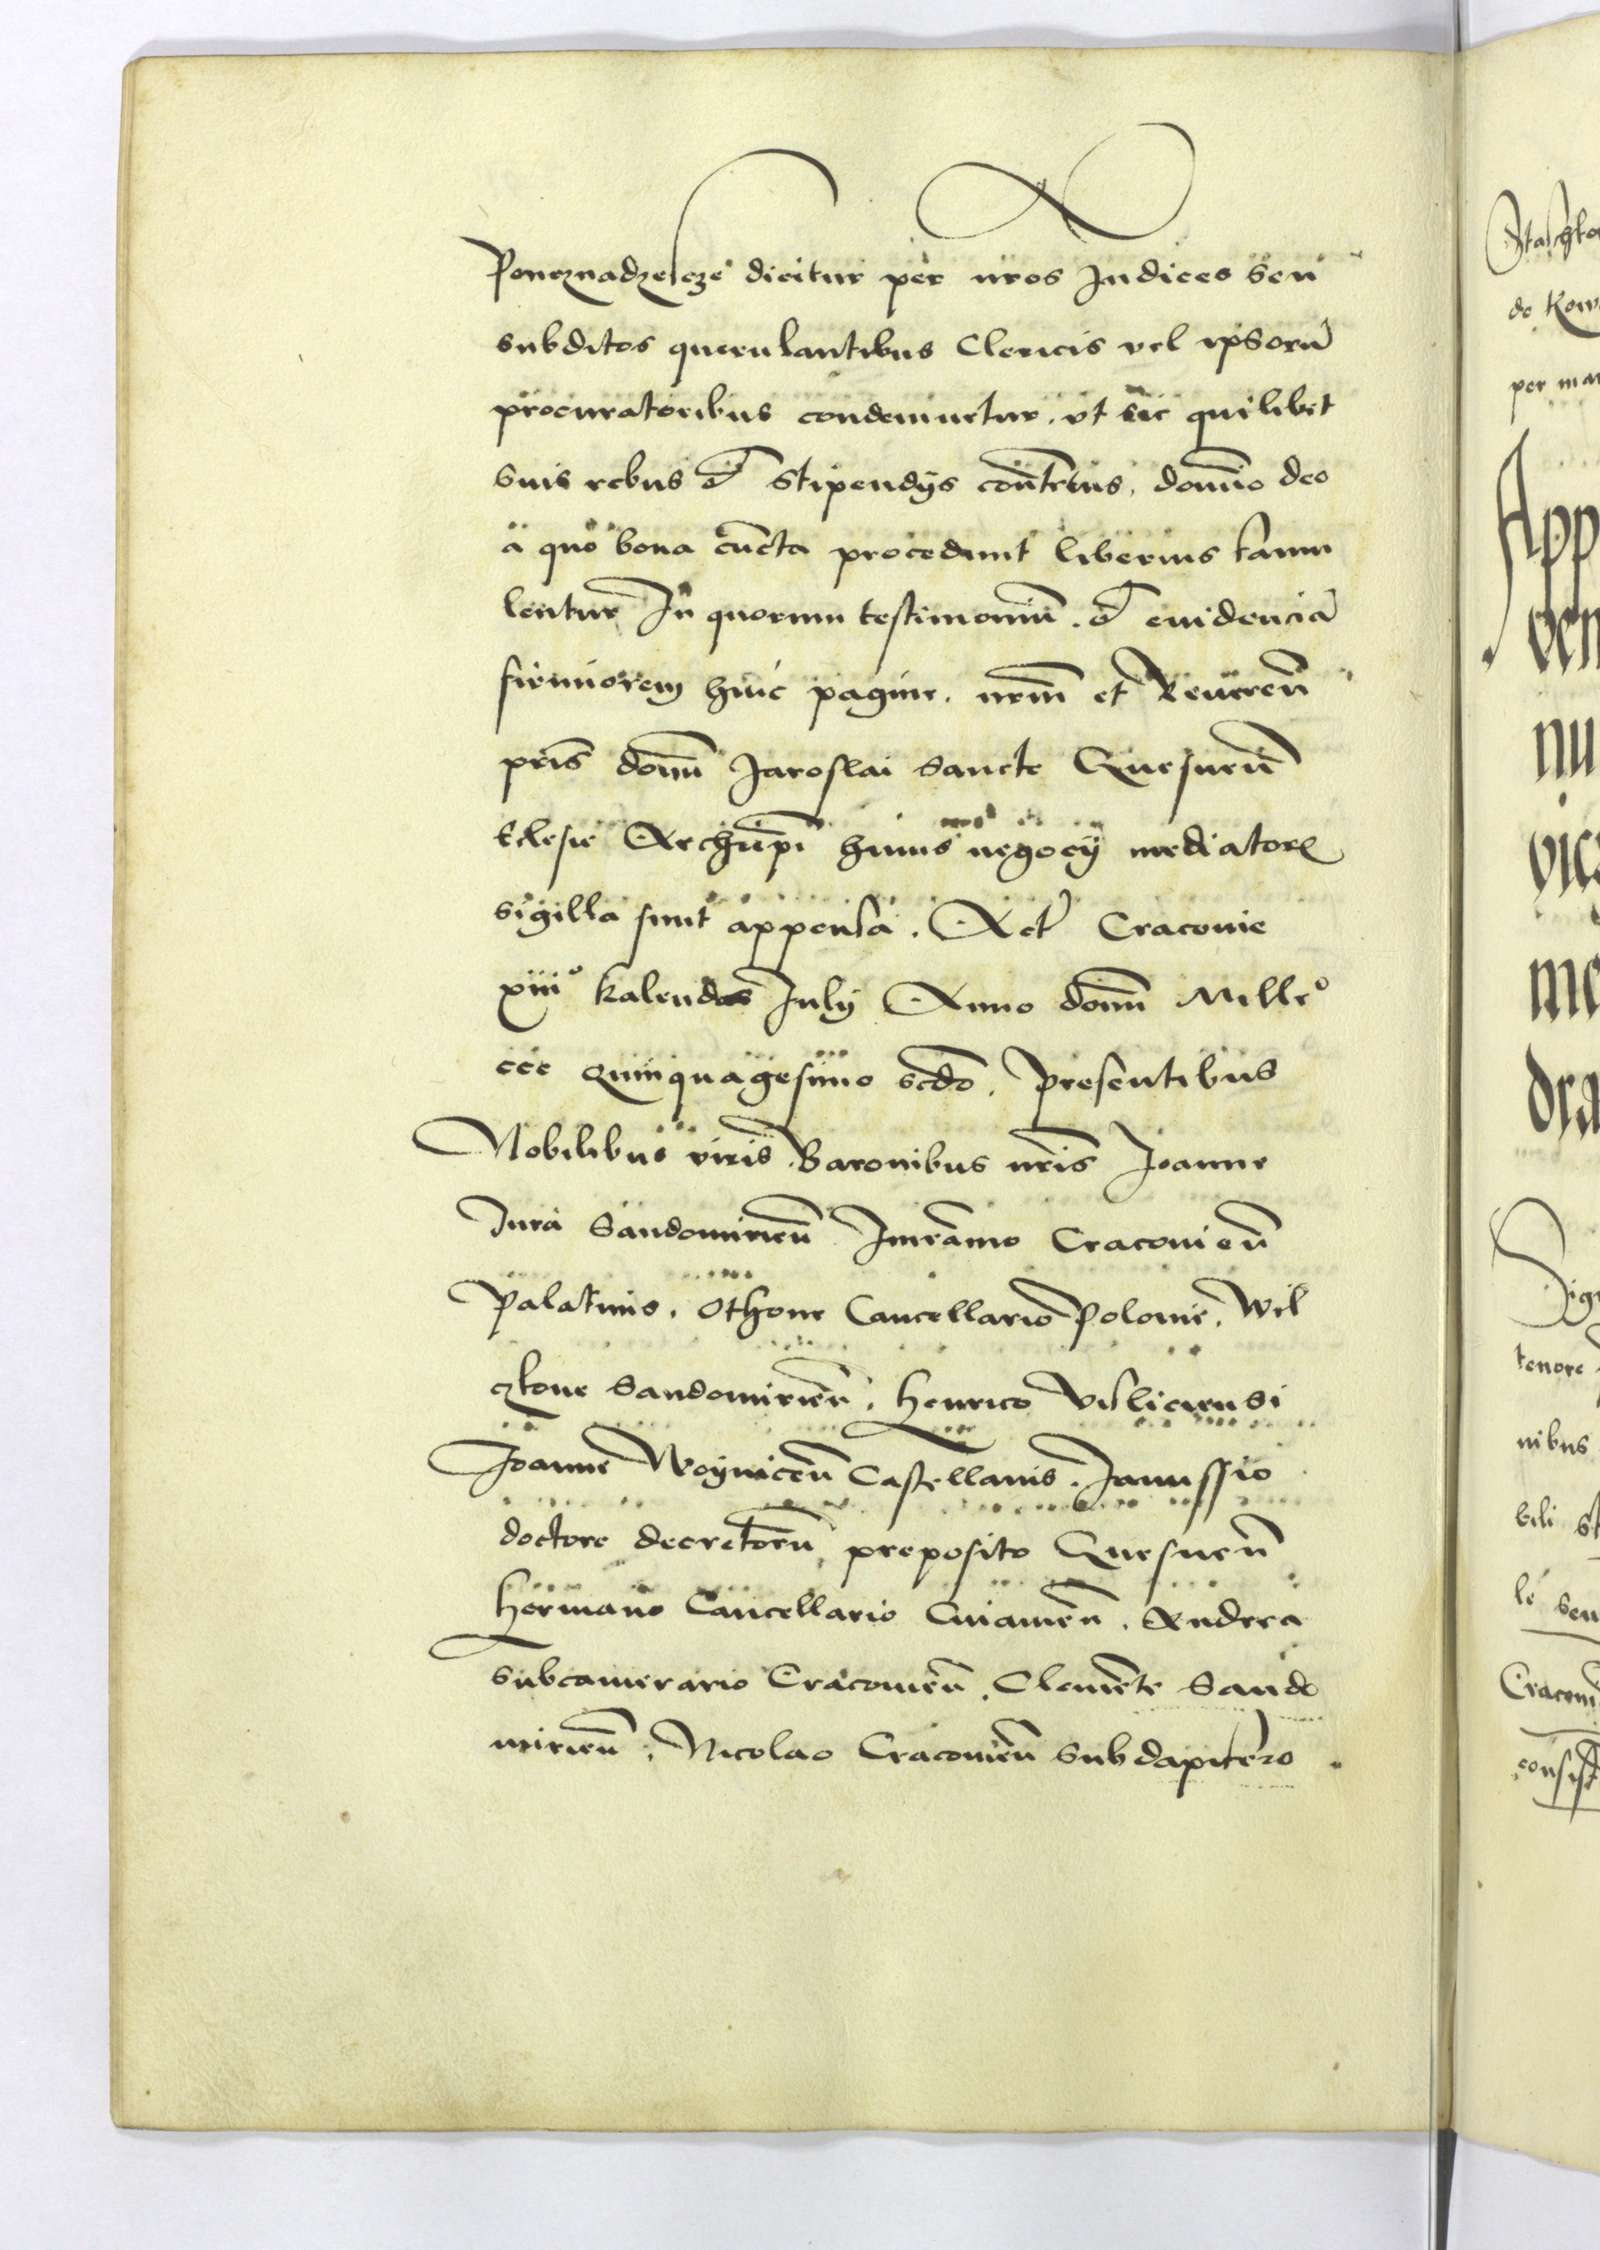 Ponyznadzelcze dicitur per nros Iudices seu
subditos querulantibus Clericis vel ipsorũ
procuratoribus condemnetur. vt sic quilibet
suis rebus et stipendijs contentus, domino deo
a quo bona cũcta procedunt liberius famu
lentur In quorum testimoniũ. et euidenciã
firmiorem huic pagine. nrm̃ et Reuereñ
pris̃ domĩ Iaroslai sancte Gnesneñ
Eclesie Archiepĩ huius negocij mediatore
sigilla sunt appensa. Act̃ Cracouie
xiii° kalendas Iulij Anno domĩ Mill°
ccc quinquagesimo scdo. presentibus
Nobilibus viris Baronibus nris̃ Ioanne
Iura Sandomirieñ Imramo Cracouieñ
Palatinis. Othone Cancellario Polonie. Wil
czkone Sandomirieñ. Henrico Visliciensi
Ioanne Woyniceñ Castellanis. Ianussio
doctore decretorũ preposito Gnesneñ
Hermano Cancellario Cuiauieñ. Andrea
subcamerario Cracouieñ. Clemẽte Sando
mirieñ. Nicolao Cracouieñ subdapifero
Stachko
de Kow
per ma
App
ven
nu
vic
me
dra
Sig
tenore
nibus
bili st
le seu
Cracoui
consist